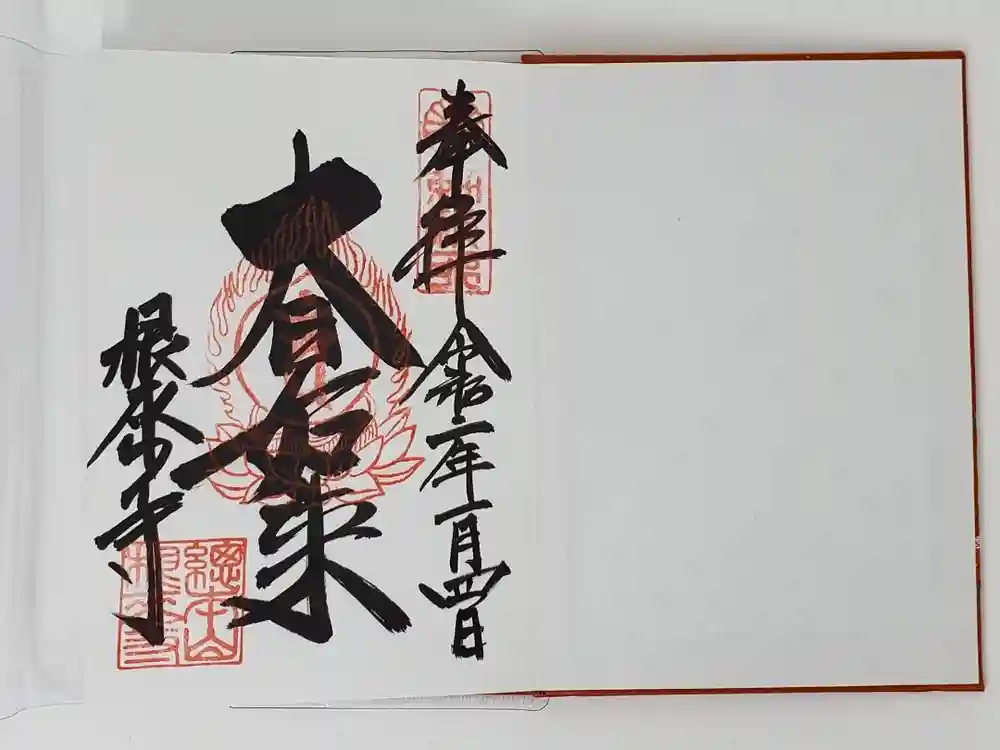 奉拝 令和二年一月四日
大日如来
根来寺
總本山
根来寺